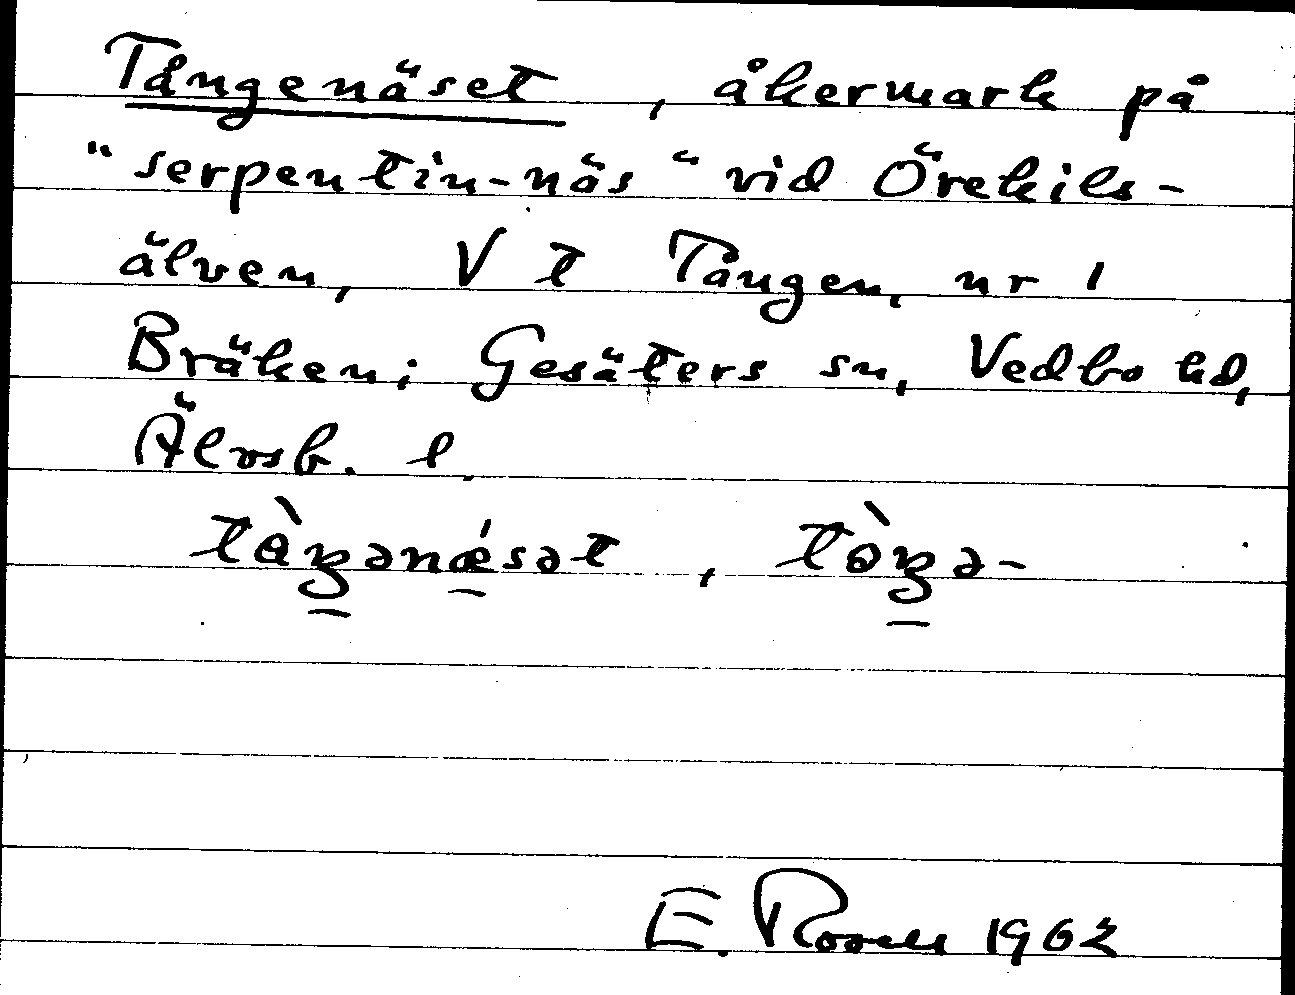 Tångenäset, åkermark på
"serpentin-näs" vid Örekils-
älven, V t Tången, nr 1
Bräken; Gesäters sn, Vedbo hd,
Älvsb. l.
tàŋənǽsət, tòŋə-
E. Rooth 1962